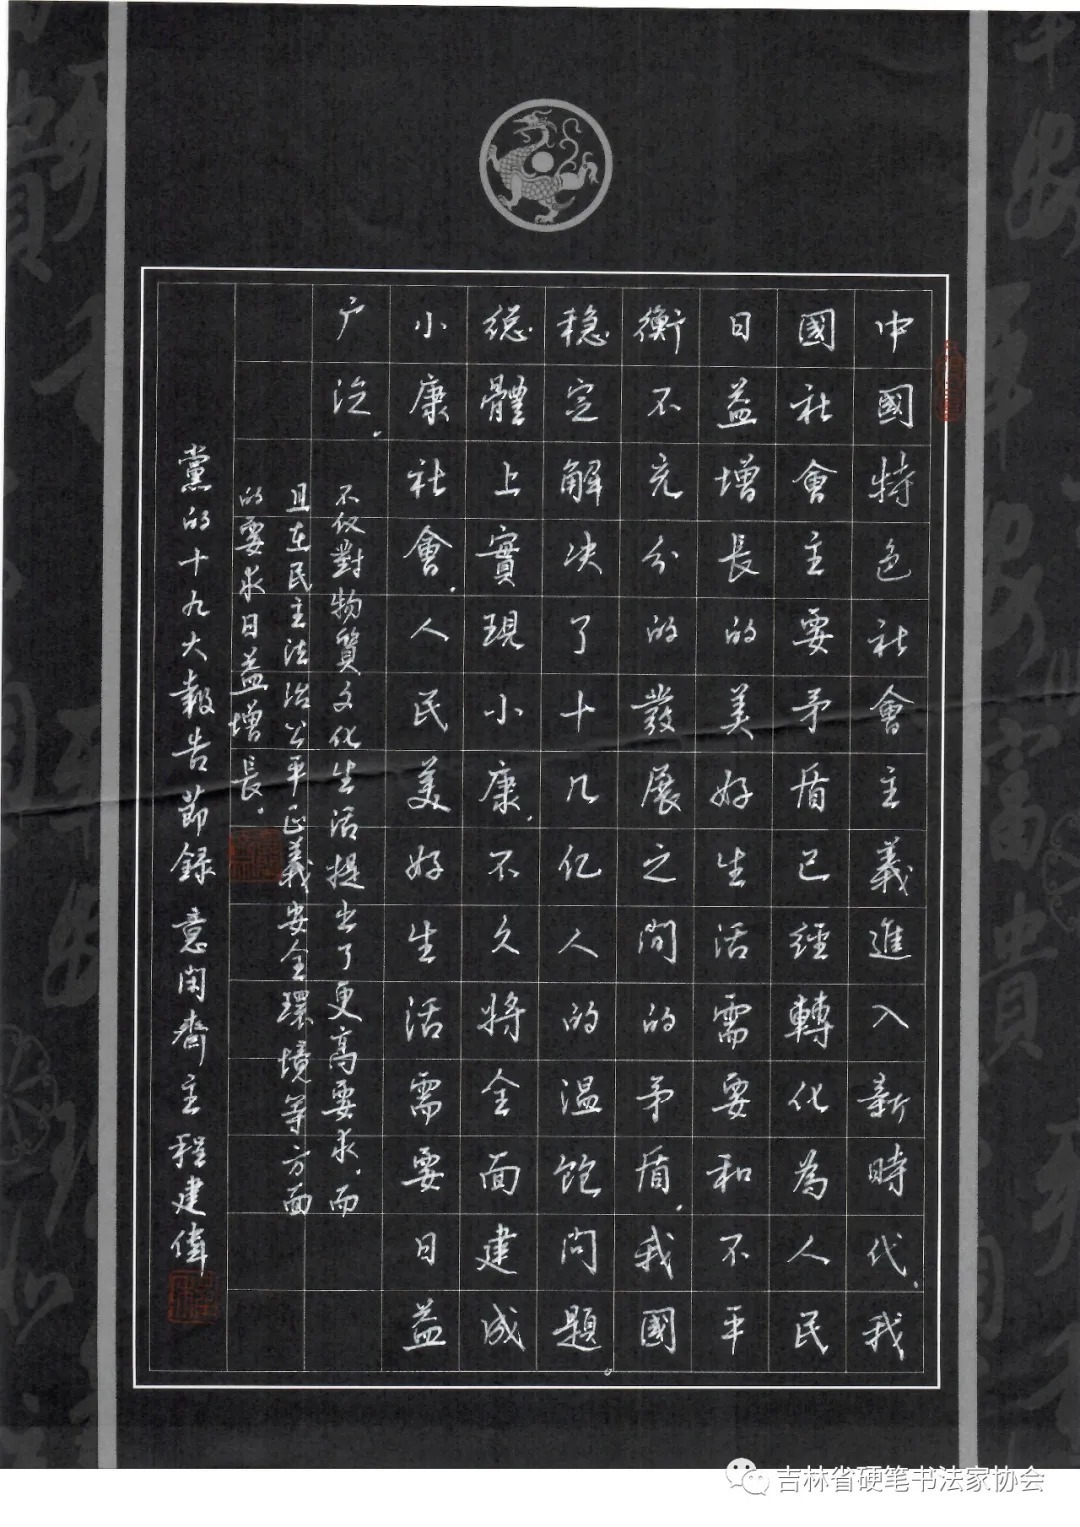 中國特色社會主義進入新時代,我
國社會主要矛盾已經轉化為人民
日益增長的美好生活需要和不平
衡不充分的發展之間的矛盾,我國
稳定解决了十几亿人的温飽问題。
總體上實現小康,不久将全面建成
小康社會,人民美好生活需要日益
广泛,
不仅對物質文化生活提出了更高要求,而
且在民主法治公平正義安全環境等方面
的要求日益增長。
黨的十九大報告節録 意闲齋主程建偉
吉林省硬笔书法家协会